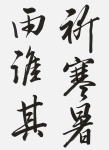 祈寒暑
雨誰其